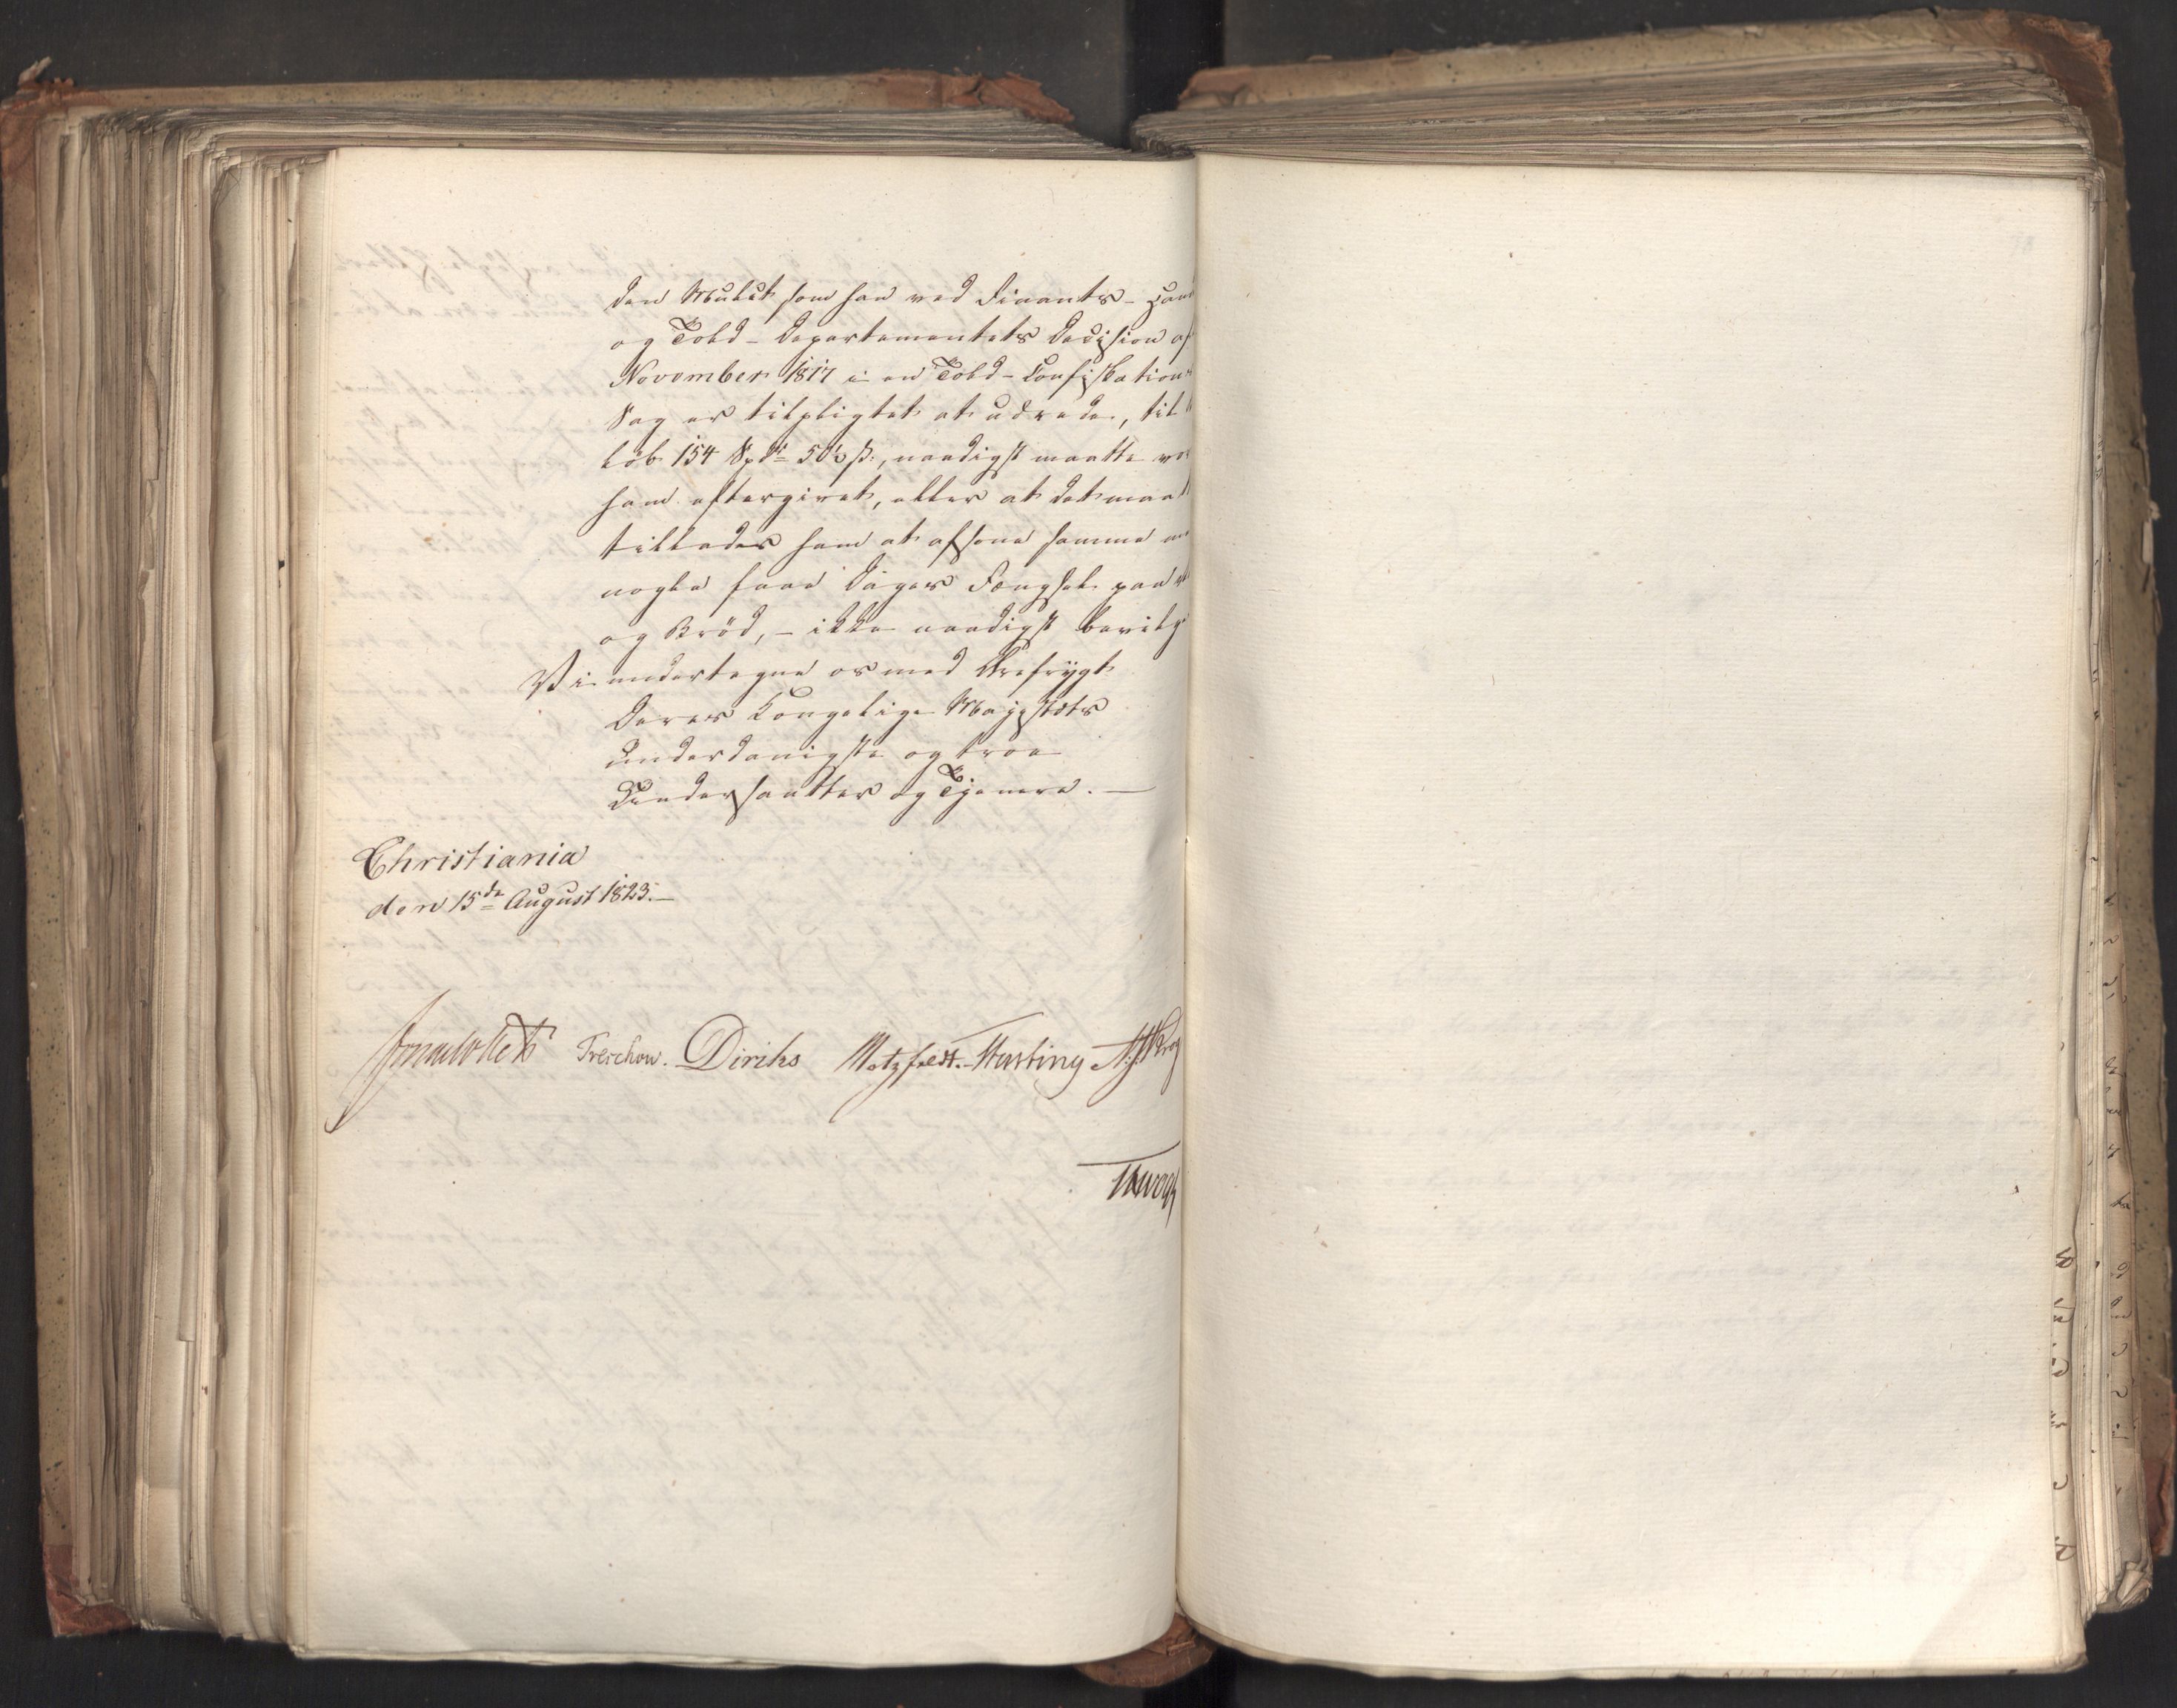 den Mulct, som han ved Finants- Han
og Told-Departementets Decision af
November 1817 i en Told-Confiskations
Sag er tilpligtet at udrede, til
Løb 154 Spd. ß., naadigst maatte
ham eftergivet, eller at det maa
tillades ham at afsone samme
nogle faae Dages Fængsel paa
og Brød, - ikke naadigst bevilg
Vi undertegne os med Ærefrygt
Deres Kongelige Majestæts
underdanigste og troe
Undersaatter og Tjenere. —
Christiania
den 15de August 1823. —
Treschow. Diriks Motzfeldt. Fasting